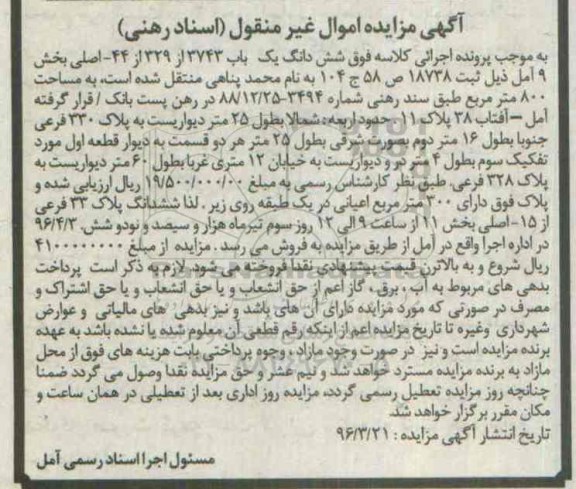 آگهی مزایده اموال غیر منقول (اسناد رهنی)
به موجب پرونده اجرائی کلاسه فوق شش دانگ یک باب ۳۷۴۳ از ۳۲۹ از ۴۴-اصلی بخش
۹ آمل ذیل ثبت ۱۸۷۳۸ ص ۵۸ ج ۱۰۴ به نام محمد پناهی منتقل شده است، به مساحت
۸۰۰ متر مربع طبق سند رهنی شماره ۳۴۹۴-۸۸/۱۲/۲۵ در رهن پست بانک / قرار گرفته
آمل - آفتاب ۳۸ پلاک ۱۱. حدود اربعه: شمالا بطول ۲۵ متر دیواریست به پلاک ۳۳۰ فرعی
جنوبا بطول ۱۶ متر دوم بصورت شرقی بطول ۲۵ متر هر دو قسمت به دیوار قطعه اول مورد
تفکیک سوم بطول ۴ متر در و دیواریست به خیابان ۱۲ متری غربا بطول ۶۰ متر دیواریست به
پلاک ۳۲۸ فرعی. طبق نظر کارشناس رسمی به مبلغ ۱۹/۵۰۰/۰۰۰/۰۰ ریال ارزیابی شده و
پلاک فوق دارای ۳۰۰ متر مربع اعیانی در یک طبقه روی زیر . لذا ششدانگ پلاک ۳۳ فرعی
از ۱۵-اصلی بخش ۱۱ از ساعت ۹ الی ۱۲ روز سوم تیرماه هزار و سیصد و نود و شش. ۹۶/۴/۳
در اداره اجرا واقع در آمل از طریق مزایده به فروش می رسد . مزایده از مبلغ ۴۱۰۰۰۰۰۰۰۰۰
ریال شروع و به بالاترن قیمت پیشنهادی نقدا فروخته می شود. لازم به ذکر است پرداخت
بدهی های مربوط به آب ، برق ، گاز اعم از حق انشعاب و یا حق انشعاب و یا حق اشتراک و
مصرف در صورتی که مورد مزایده دارای آن های باشد و نیز بدهی های مالیاتی و عوارض
شهرداری وغیره تا تاریخ مزایده اعم از اینکه رقم قطعی آن معلوم شده یا نشده باشد به عهده
برنده مزایده است و نیز در صورت وجود مازاد ، وجوه پرداختی بابت هزینه های فوق از محل
مازاد به برنده مزایده مسترد خواهد شد و نیم عشر و حق مزایده نقدا وصول می گردد ضمنا
چنانچه روز مزایده تعطیل رسمی گردد، مزایده روز اداری بعد از تعطیلی در همان ساعت و
مکان مقرر برگزار خواهد شد.
تاریخ انتشار آگهی مزایده : ۹۶/۳/۲۱
مسئول اجرا اسناد رسمی آمل